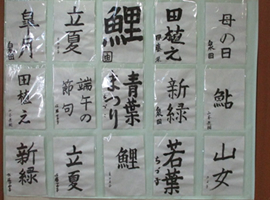 母の日
鮎
山女
田植え
新緑
若葉
鯉
青葉
まつり
鯉
立夏
端午の
節句
立夏
皐月
田植え
新緑